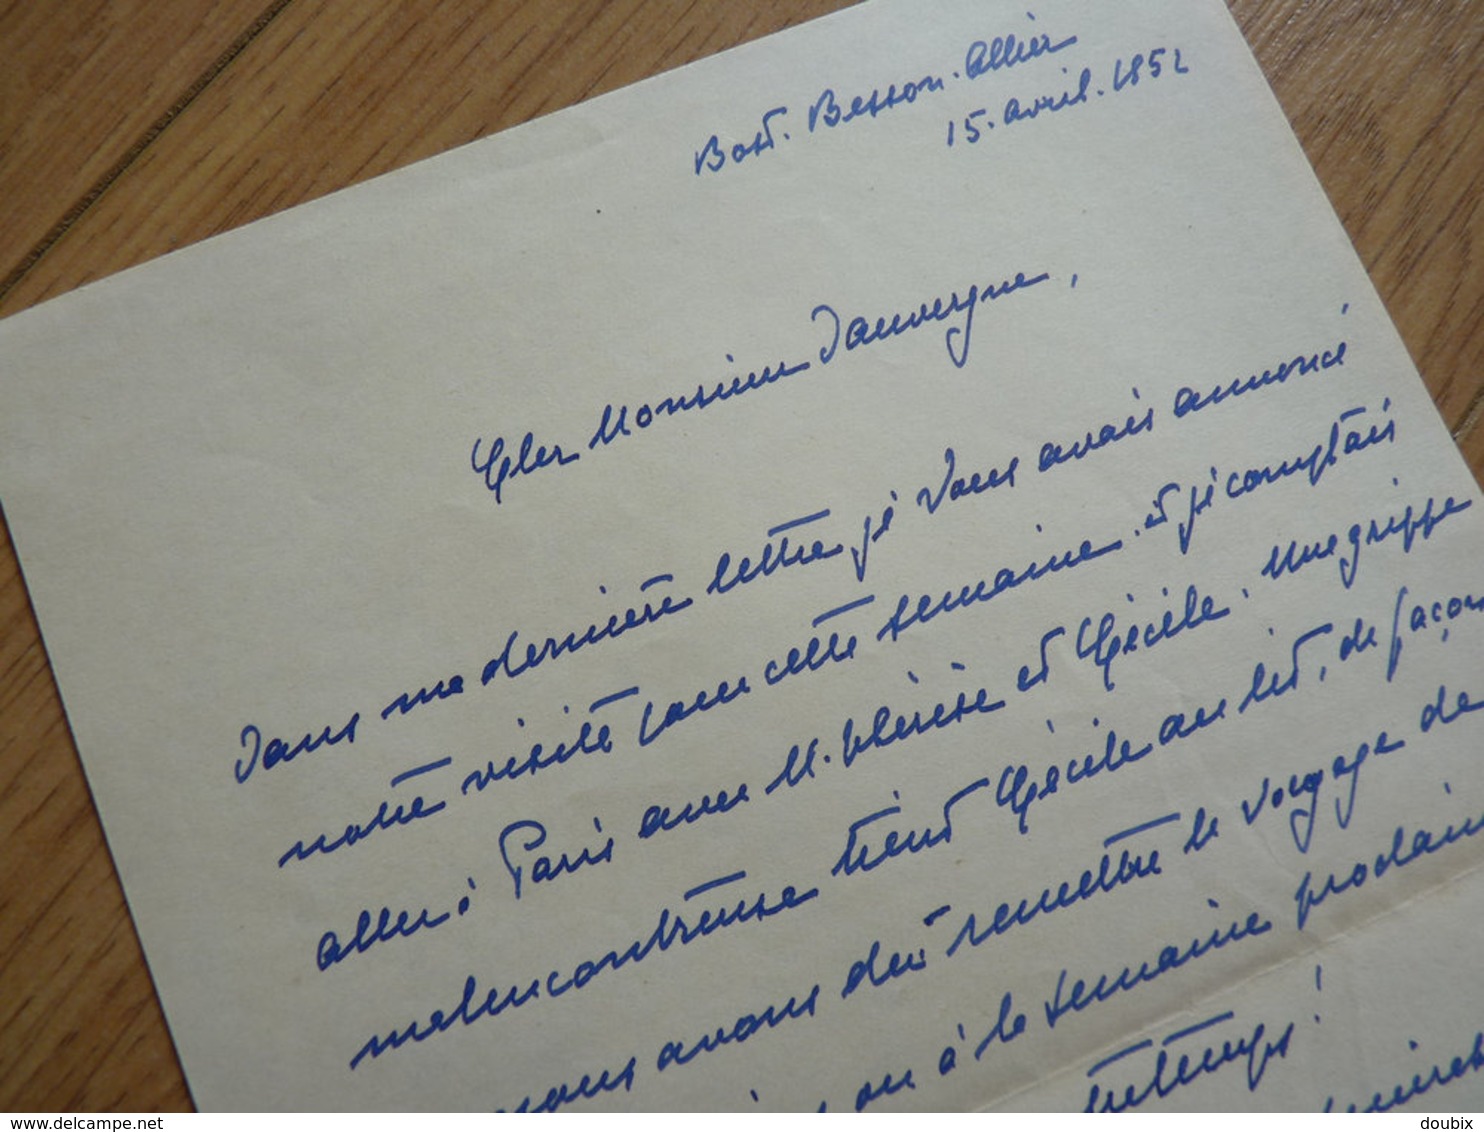 Bost. Besson. Allier
15. avril. 1852
Cher Monsieur Dauvergne,
Dans ma dernière lettre je vous avais annoncé
notre visite pour cette semaine. et je comptais
aller à Paris avec M. Thérèse et Cécile. Une grippe
malencontreuse tient Cécile au lit, de façon
nous avons dû remettre le voyage de
ou à la semaine prochaine
!
© delcampe.net
doubix